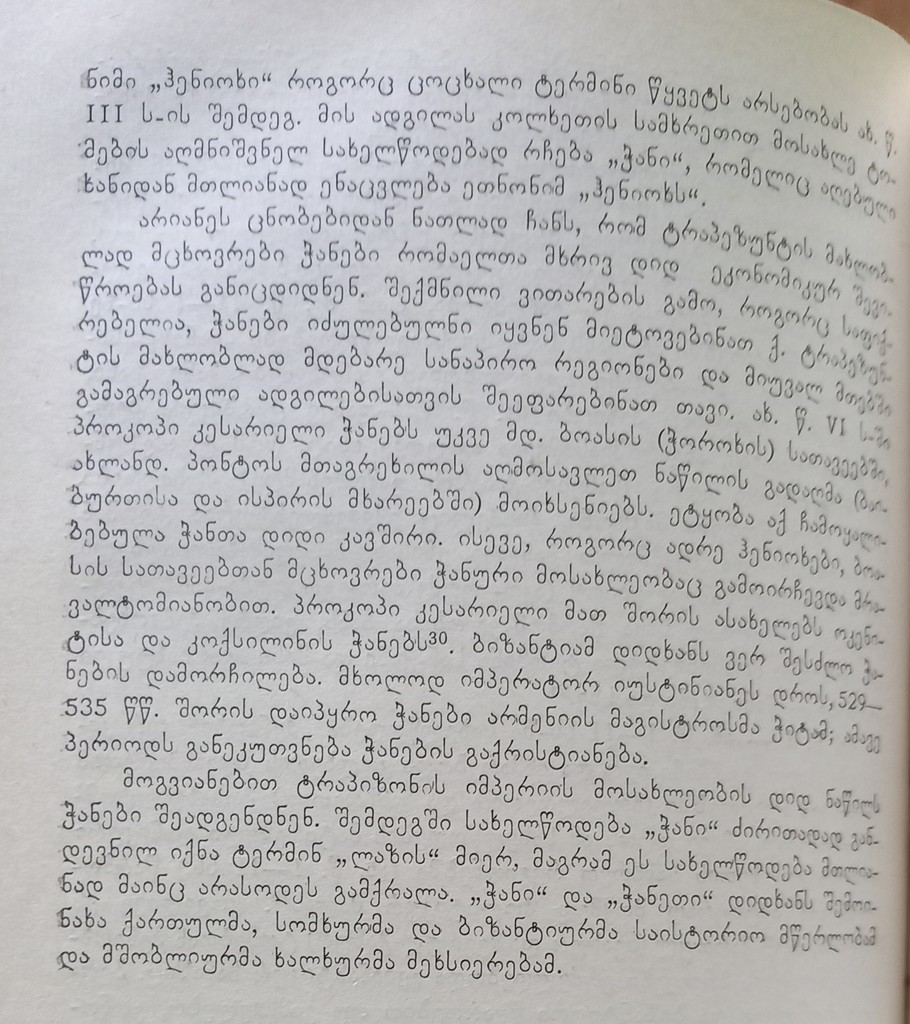 ნიმი „ჰენიოხი“ როგორც ცოცხალი ტერმინი წყვეტს არსებობას ახ. წ.
III ს-ის შემდეგ. მის ადგილას კოლხეთის სამხრეთით მოსახლე ტო-
მების აღმნიშვნელ სახელწოდებად რჩება „ჭანი“, რომელიც აღებული
ხანიდან მთლიანად ენაცვლება ეთნონიმ „ჰენიოხს“.
არიანეს ცნობებიდან ნათლად ჩანს, რომ ტრაპეზუნტის მახლობ-
ლად მცხოვრები ჭანები რომაელთა მხრივ დიდ ეკონომიკურ შევი-
წროებას განიცდიდნენ. შექმნილი ვითარების გამო, როგორც საფიქ-
რებელია, ჭანები იძულებულნი იყვნენ მიეტოვებინათ ქ. ტრაპეზუნ-
ტის მახლობლად მდებარე სანაპირო რეგიონები და მიუვალ მთებში
გამაგრებული ადგილებისათვის შეეფარებინათ თავი. ახ. წ. VI ს-ში
პროკოპი კესარიელი ჭანებს უკვე მდ. ბოასის (ჭოროხის) სათავეებში,
ახლანდ. პონტოს მთაგრეხილის აღმოსავლეთ ნაწილის გადაღმა (ბაი-
ბურთისა და ისპირის მხარეებში) მოიხსენიებს. ეტყობა აქ ჩამოყალი-
ბებულა ჭანთა დიდი კავშირი. ისევე, როგორც ადრე ჰენიოხები, ბოა-
სის სათავეებთან მცხოვრები ჭანური მოსახლეობაც გამოირჩევდა მრა-
ვალტომიანობით. პროკოპი კესარიელი მათ შორის ასახელებს ოკენი-
ტისა და კოქსილინის ჭანებს³⁰. ბიზანტიამ დიდხანს ვერ შესძლო ჭა-
ნების დამორჩილება. მხოლოდ იმპერატორ იუსტინიანეს დროს, 529—
535 წწ. შორის დაიპყრო ჭანები არმენიის მაგისტროსმა ჭიტამ; ამავე
პერიოდს განეკუთვნება ჭანების გაქრისტიანება.
მოგვიანებით ტრაპიზონის იმპერიის მოსახლეობის დიდ ნაწილს
ჭანები შეადგენდნენ. შემდეგში სახელწოდება „ჭანი“ ძირითადად გან-
დევნილ იქნა ტერმინ „ლაზის“ მიერ, მაგრამ ეს სახელწოდება მთლია-
ნად მაინც არასოდეს გამქრალა. „ჭანი“ და „ჭანეთი“ დიდხანს შემოი-
ნახა ქართულმა, სომხურმა და ბიზანტიურმა საისტორიო მწერლობამ
და მშობლიურმა ხალხურმა მეხსიერებამ.